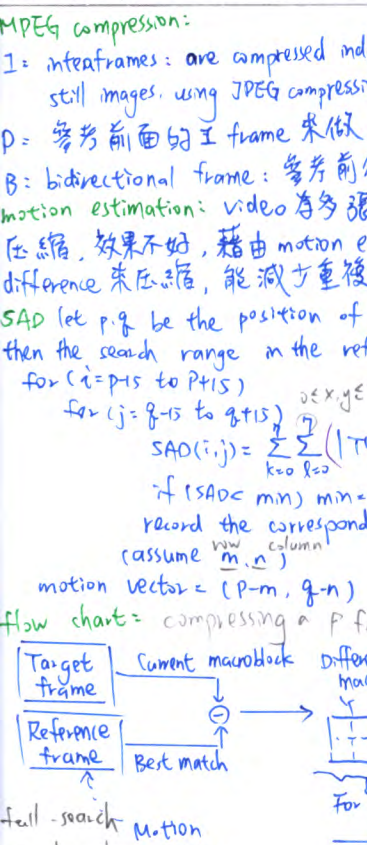 MPEG compression:
I: intraframes: are compressed ind
still images. using JPEG compressi
P: 參考前面的I frame 來做
B: bidirectional frame: 參考前
motion estimation: video 為多張
压縮, 效果不好, 藉由 motion e
difference 來压縮, 能減少重複
SAD let p.q be the position of
then the search range in the ref
for (i=p-15 to p+15)
for (j=q-15 to q+15) 0≤x,y≤
SAD(i,j)= Σ Σ (|
k=0 l=0
if (SAD< min) min=
record the correspond
row column
(assume m, n)
motion vector = (p-m, q-n)
flow chart: compressing a P f
Target frame
Current macroblock
Differen
mac
Reference frame
Best match
For
full-search
Motion